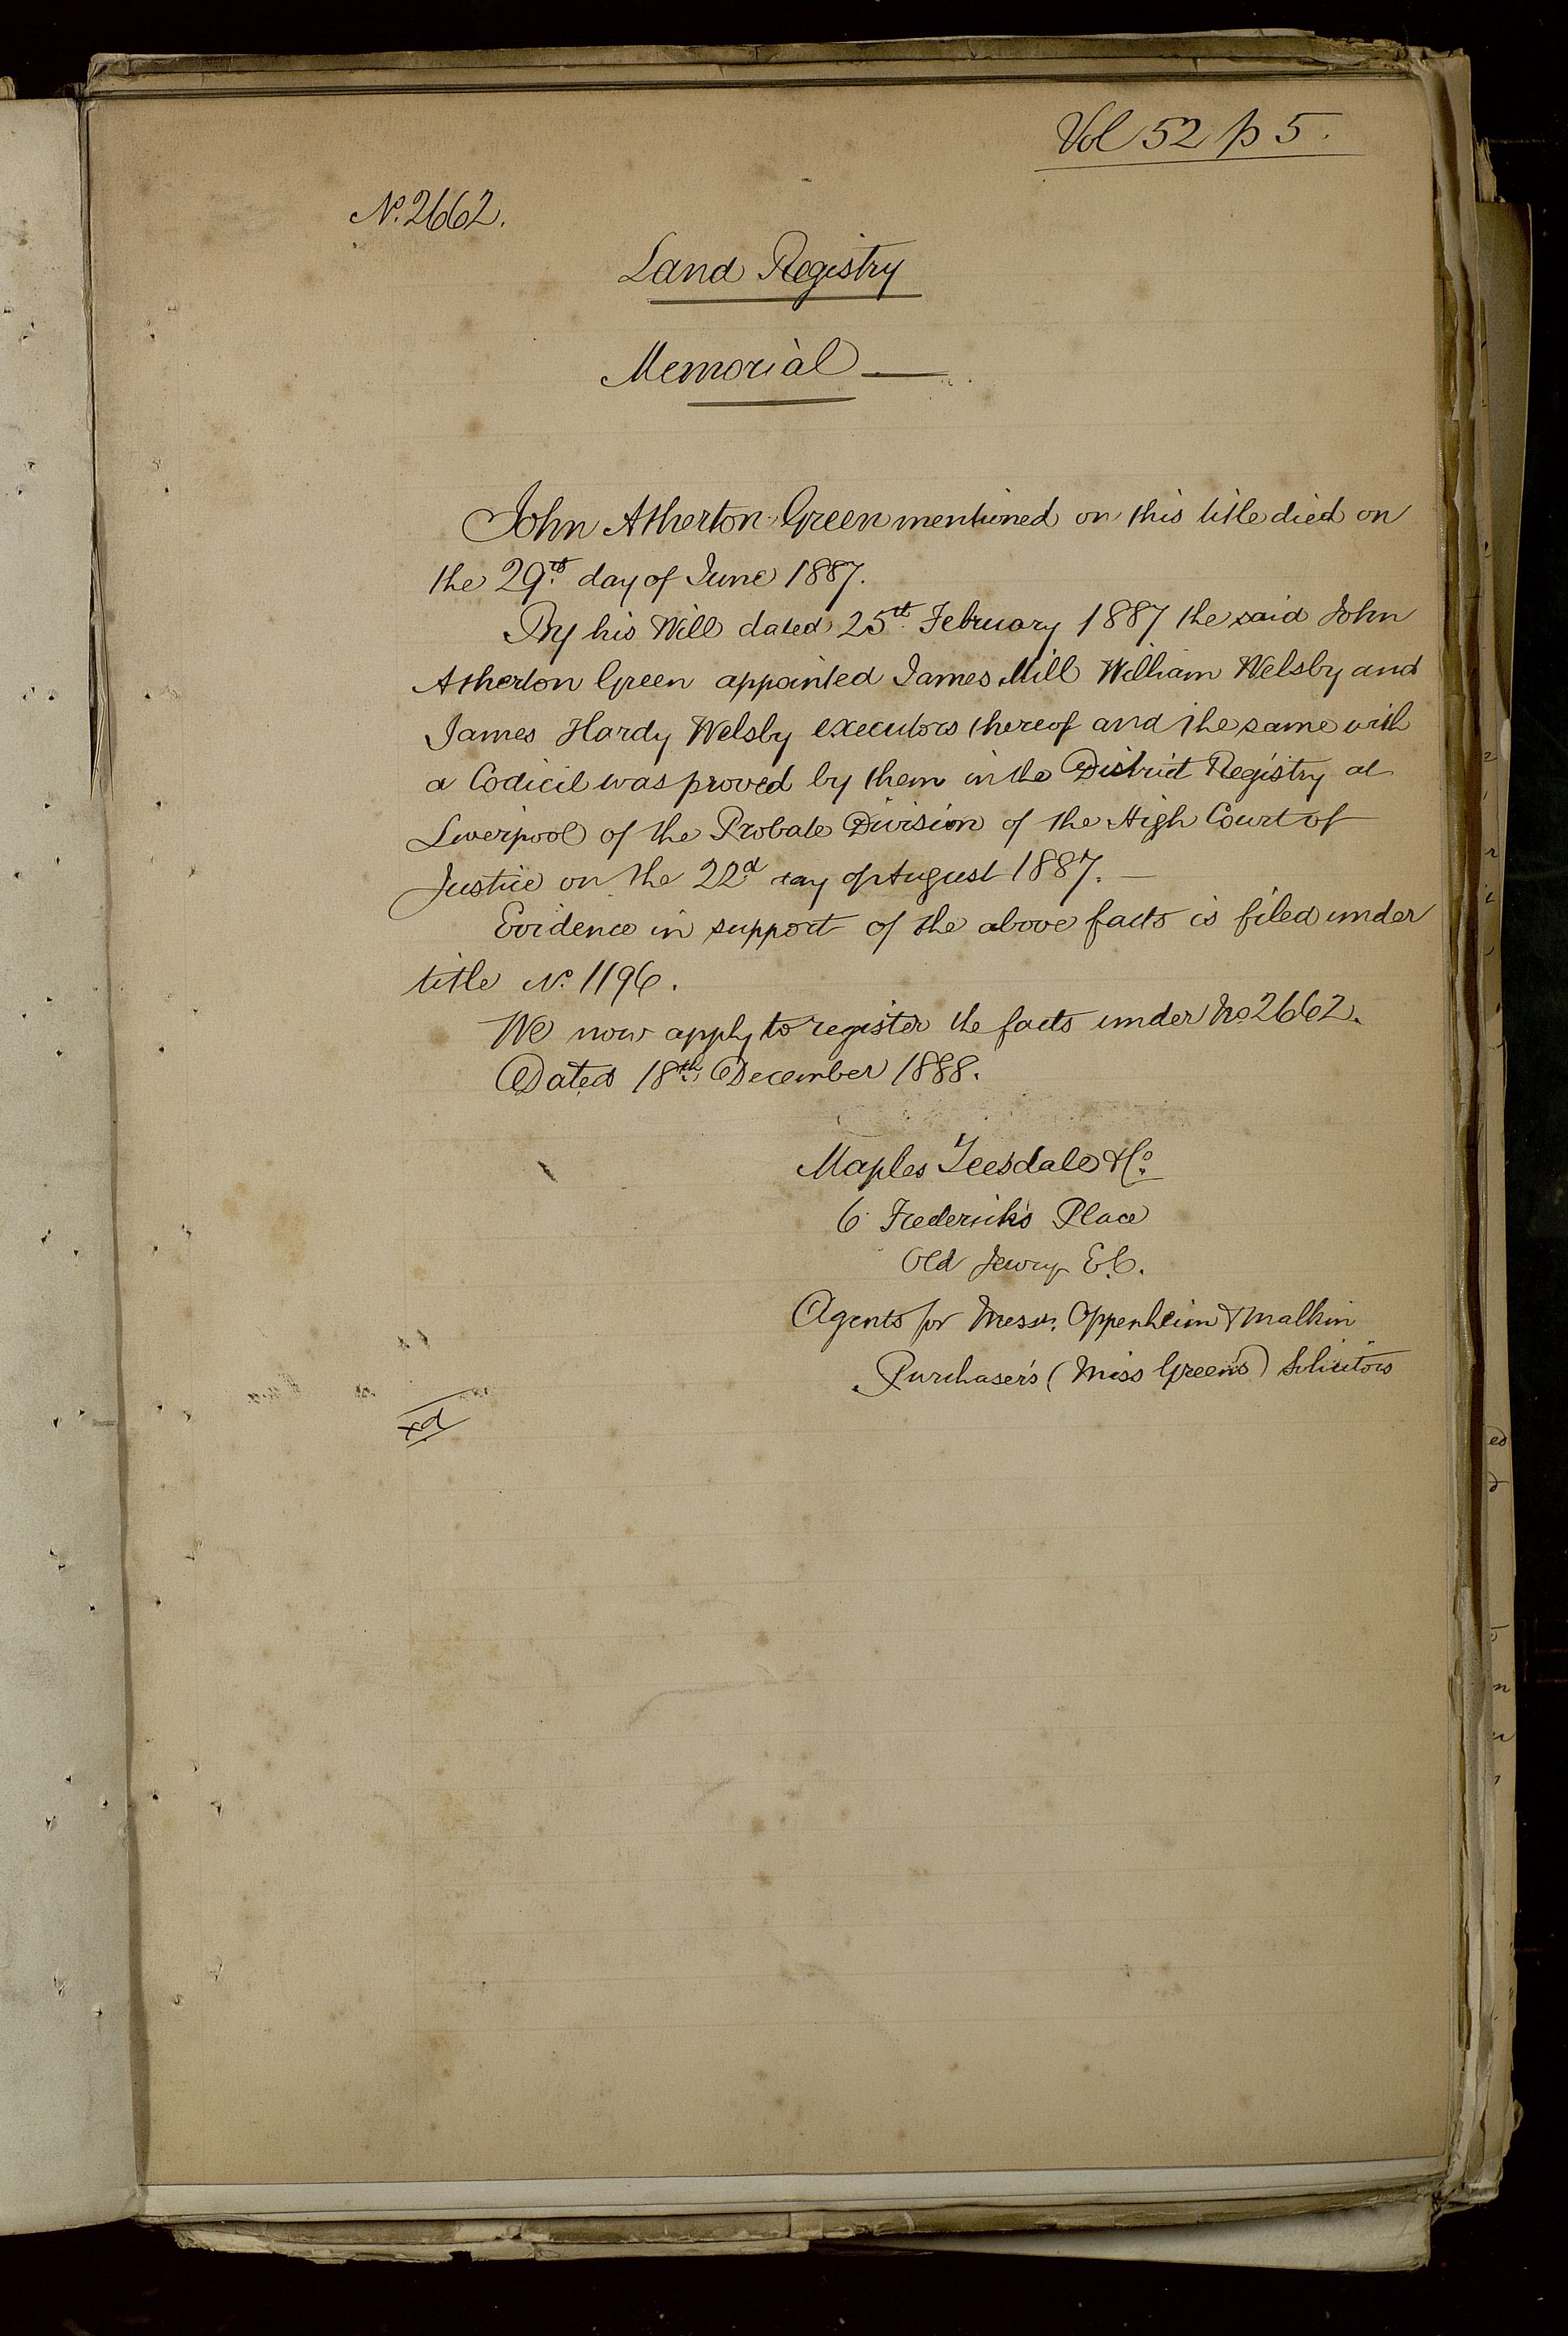 Vol 52 p 5.
No. 2662.
Land Registry
Memorial
John Atherton Green mentioned on this title died on
the 29th day of June 1887.
By his Will dated 25th February 1887 the said John
Atherton Green appointed James Mill William Welsby and
James Hardy Welsby executors thereof and the same with
a Codicil was proved by them in the District Registry at
Liverpool of the Probate Division of the High Court of
Justice on the 22d day of August 1887.
Evidence in support of the above facts is filed under
title No. 1196.
We now apply to register the facts under No 2662.
Dated 18th December 1888.
Maples Teesdale & Co.
6 Frederick's Place
Old Jewry E.C.
Agents for Messrs. Oppenheim & Malkin
Purchaser's (Miss Green's) Solicitors
xd